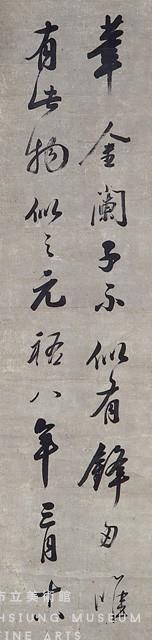 金蘭子不似有鋒唯
有此物似之元祐八年三月十八
市立美術館
HSIUNG MUSEUM
FINE ARTS